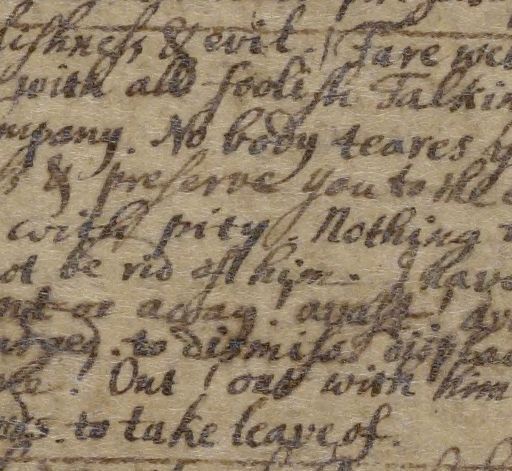 lishness & evil. Fare wel
with all foolish Talkin
mpany. No body teares y
& preserve you to the
with pity. Nothing
ot be rid of him. I have
nd or away. avast!
to dismiss. displac
Out! out with him
to take leave of.